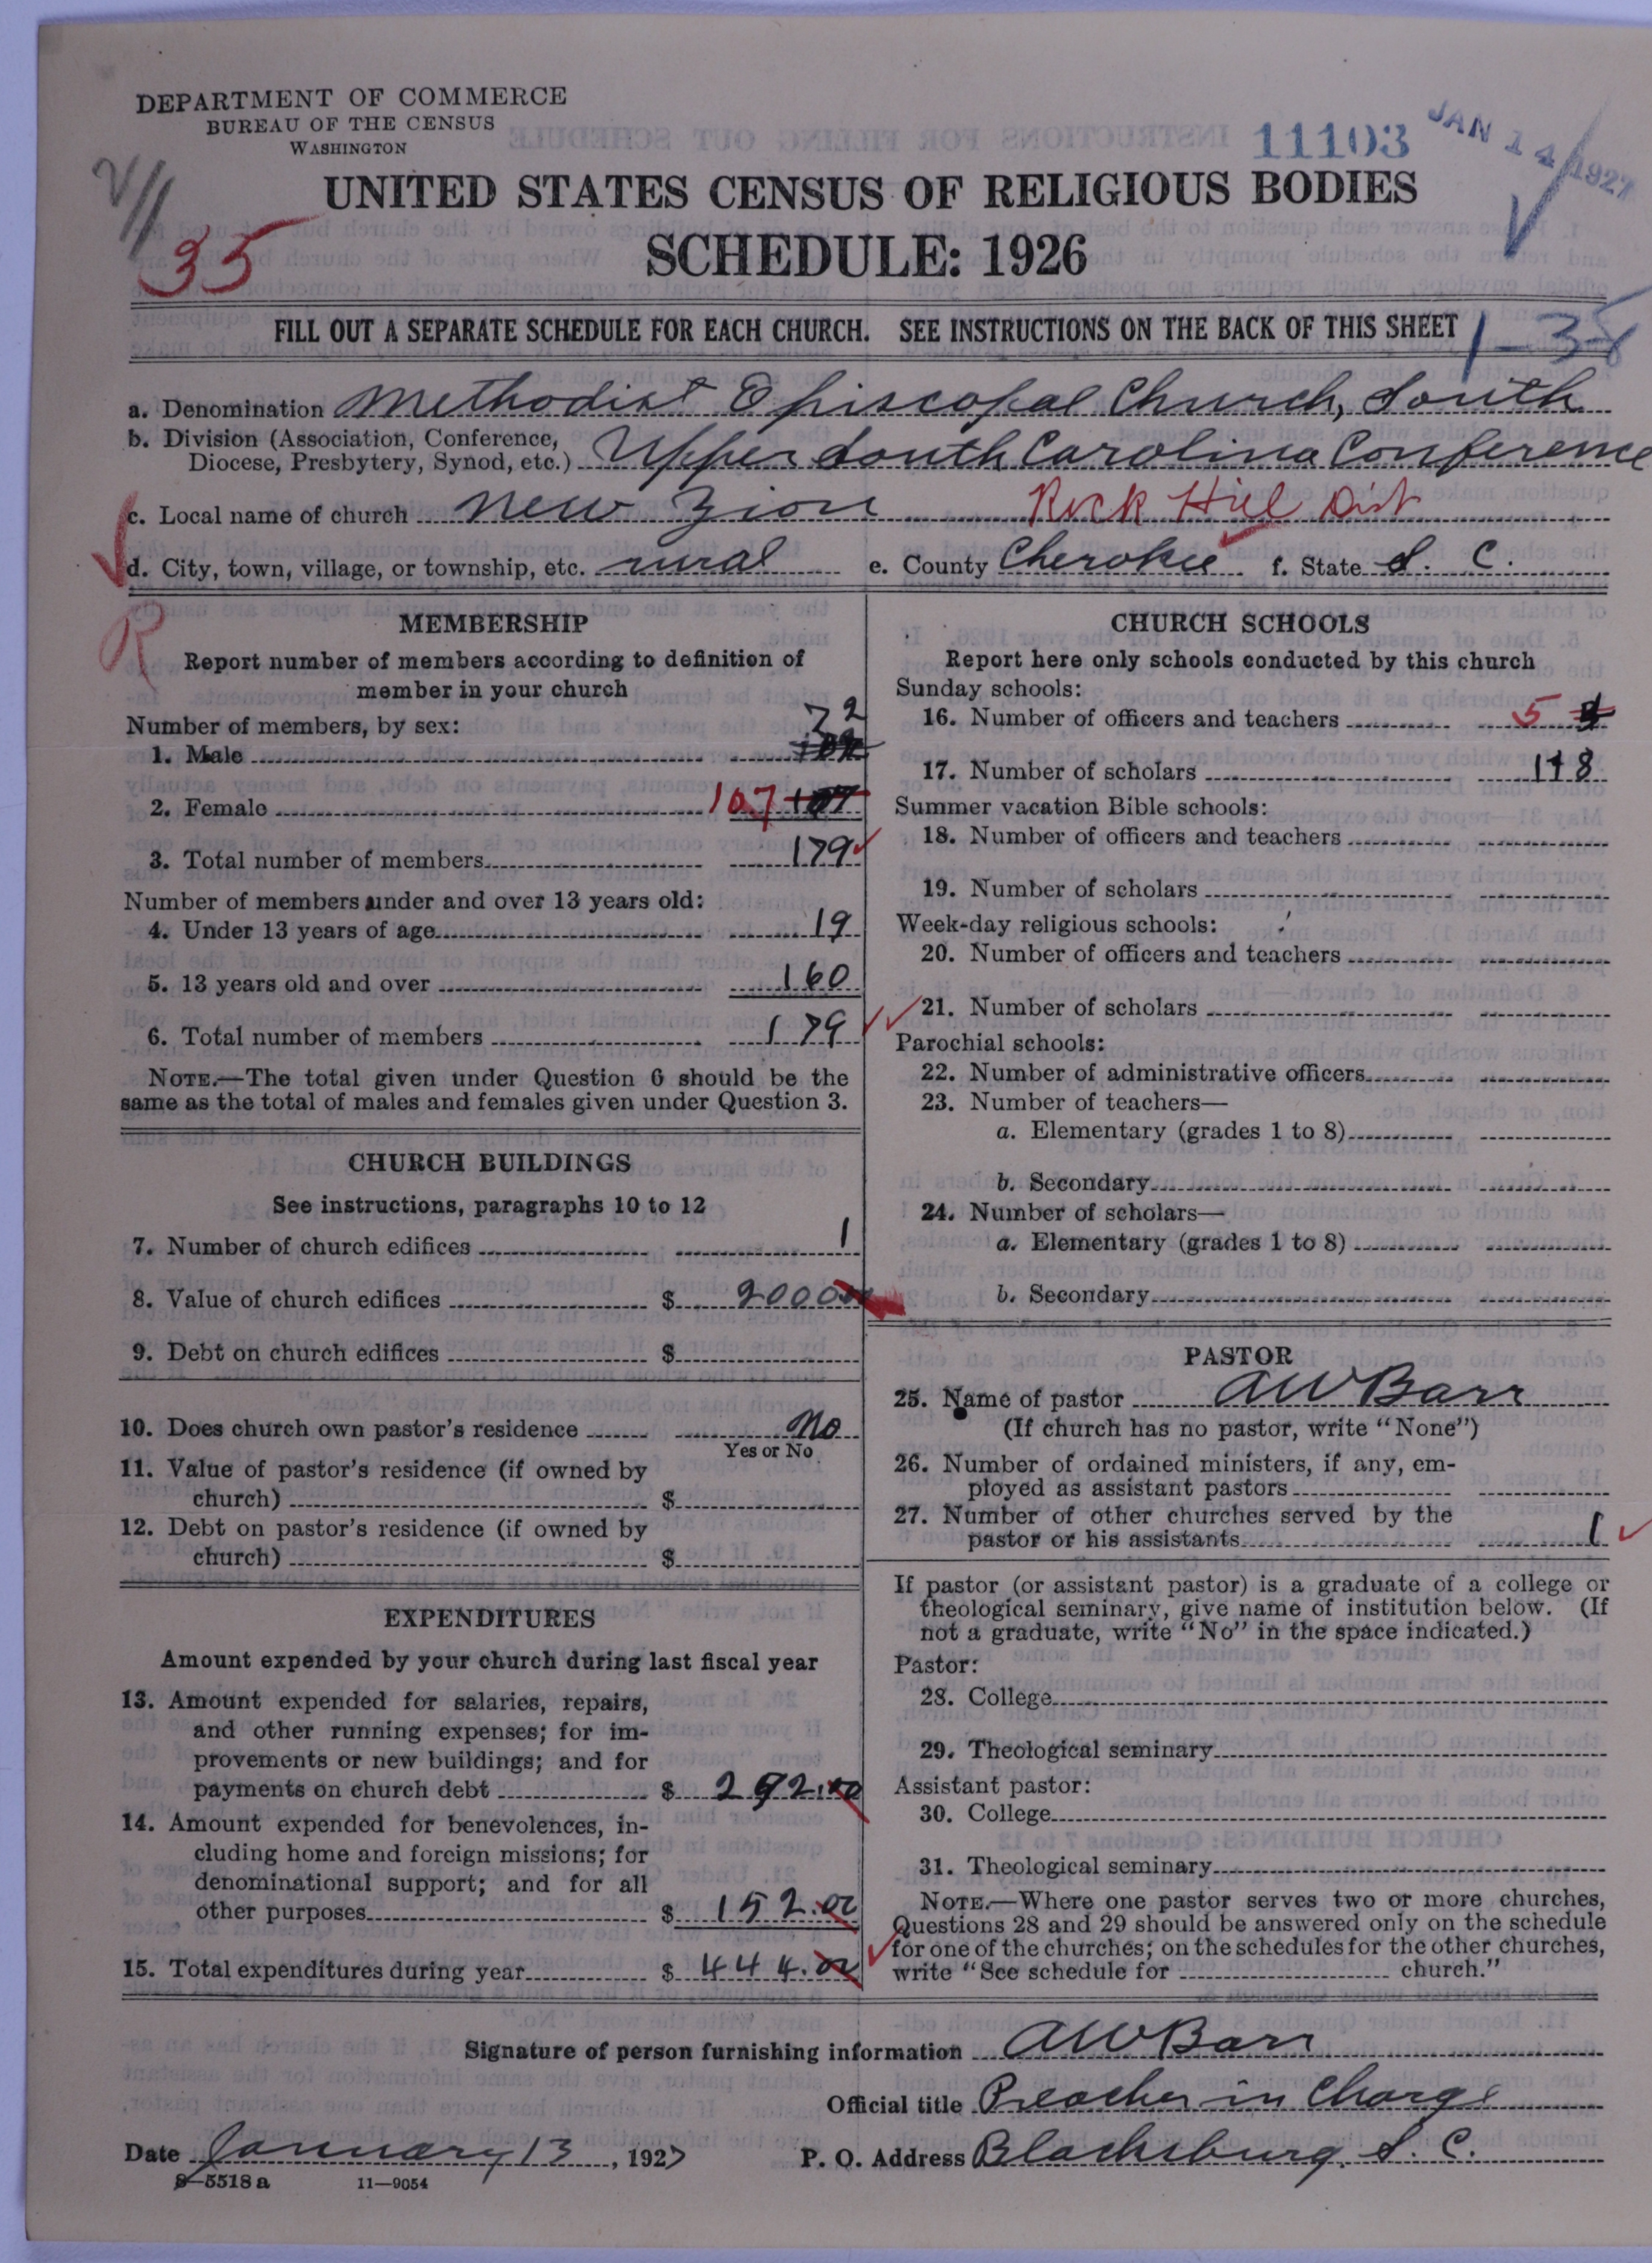 DEPARTMENT OF COMMERCE
BUREAU OF THE CENSUS
WASHINGTON
11103
JAN 14 1927
35
UNITED STATES CENSUS OF RELIGIOUS BODIES
SCHEDULE: 1926
FILL OUT A SEPARATE SCHEDULE FOR EACH CHURCH. SEE INSTRUCTIONS ON THE BACK OF THIS SHEET
a. Denomination Methodist Episcopal Church, South
b. Division (Association, Conference,
Diocese, Presbytery, Synod, etc.) Upper South Carolina Conference
c. Local name of church New Zion Rock Hill Dist
d. City, town, village, or township, etc. rural e. County Cherokee f. State S. C.
R
MEMBERSHIP
Report number of members according to definition of
member in your church
Number of members, by sex:
1. Male 72
2. Female 107 107
3. Total number of members 179
Number of members under and over 13 years old:
4. Under 13 years of age 19
5. 13 years old and over 160
6. Total number of members 179
NOTE.—The total given under Question 6 should be the
same as the total of males and females given under Question 3.
CHURCH BUILDINGS
See instructions, paragraphs 10 to 12
7. Number of church edifices 1
8. Value of church edifices $ 2000.00
9. Debt on church edifices $
10. Does church own pastor's residence No
Yes or No
11. Value of pastor's residence (if owned by
church) $
12. Debt on pastor's residence (if owned by
church) $
EXPENDITURES
Amount expended by your church during last fiscal year
13. Amount expended for salaries, repairs,
and other running expenses; for im-
provements or new buildings; and for
payments on church debt $ 292.00
14. Amount expended for benevolences, in-
cluding home and foreign missions; for
denominational support; and for all
other purposes $ 152.00
15. Total expenditures during year $ 444.00
CHURCH SCHOOLS
Report here only schools conducted by this church
Sunday schools:
16. Number of officers and teachers 5
17. Number of scholars 118
Summer vacation Bible schools:
18. Number of officers and teachers
19. Number of scholars
Week-day religious schools:
20. Number of officers and teachers
21. Number of scholars
Parochial schools:
22. Number of administrative officers
23. Number of teachers—
a. Elementary (grades 1 to 8)
b. Secondary
24. Number of scholars—
a. Elementary (grades 1 to 8)
b. Secondary
PASTOR
25. Name of pastor A W Barr
(If church has no pastor, write "None")
26. Number of ordained ministers, if any, em-
ployed as assistant pastors
27. Number of other churches served by the
pastor or his assistants 1
If pastor (or assistant pastor) is a graduate of a college or
theological seminary, give name of institution below. (If
not a graduate, write "No" in the space indicated.)
Pastor:
28. College
29. Theological seminary
Assistant pastor:
30. College
31. Theological seminary
NOTE.—Where one pastor serves two or more churches,
Questions 28 and 29 should be answered only on the schedule
for one of the churches; on the schedules for the other churches,
write "See schedule for church."
Signature of person furnishing information A W Barr
Official title Preacher in Charge
Date January 13, 1927 P. O. Address Blacksburg, S. C.
8—5518 a 11—9054